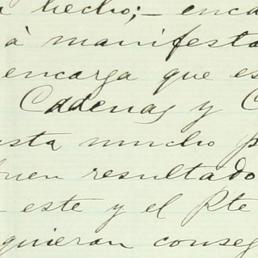 hecho; — enca
á manifesta
encarga que es
Cadenas y C
sta mucho p
buen resultado
este y el Pte
quieran conseg